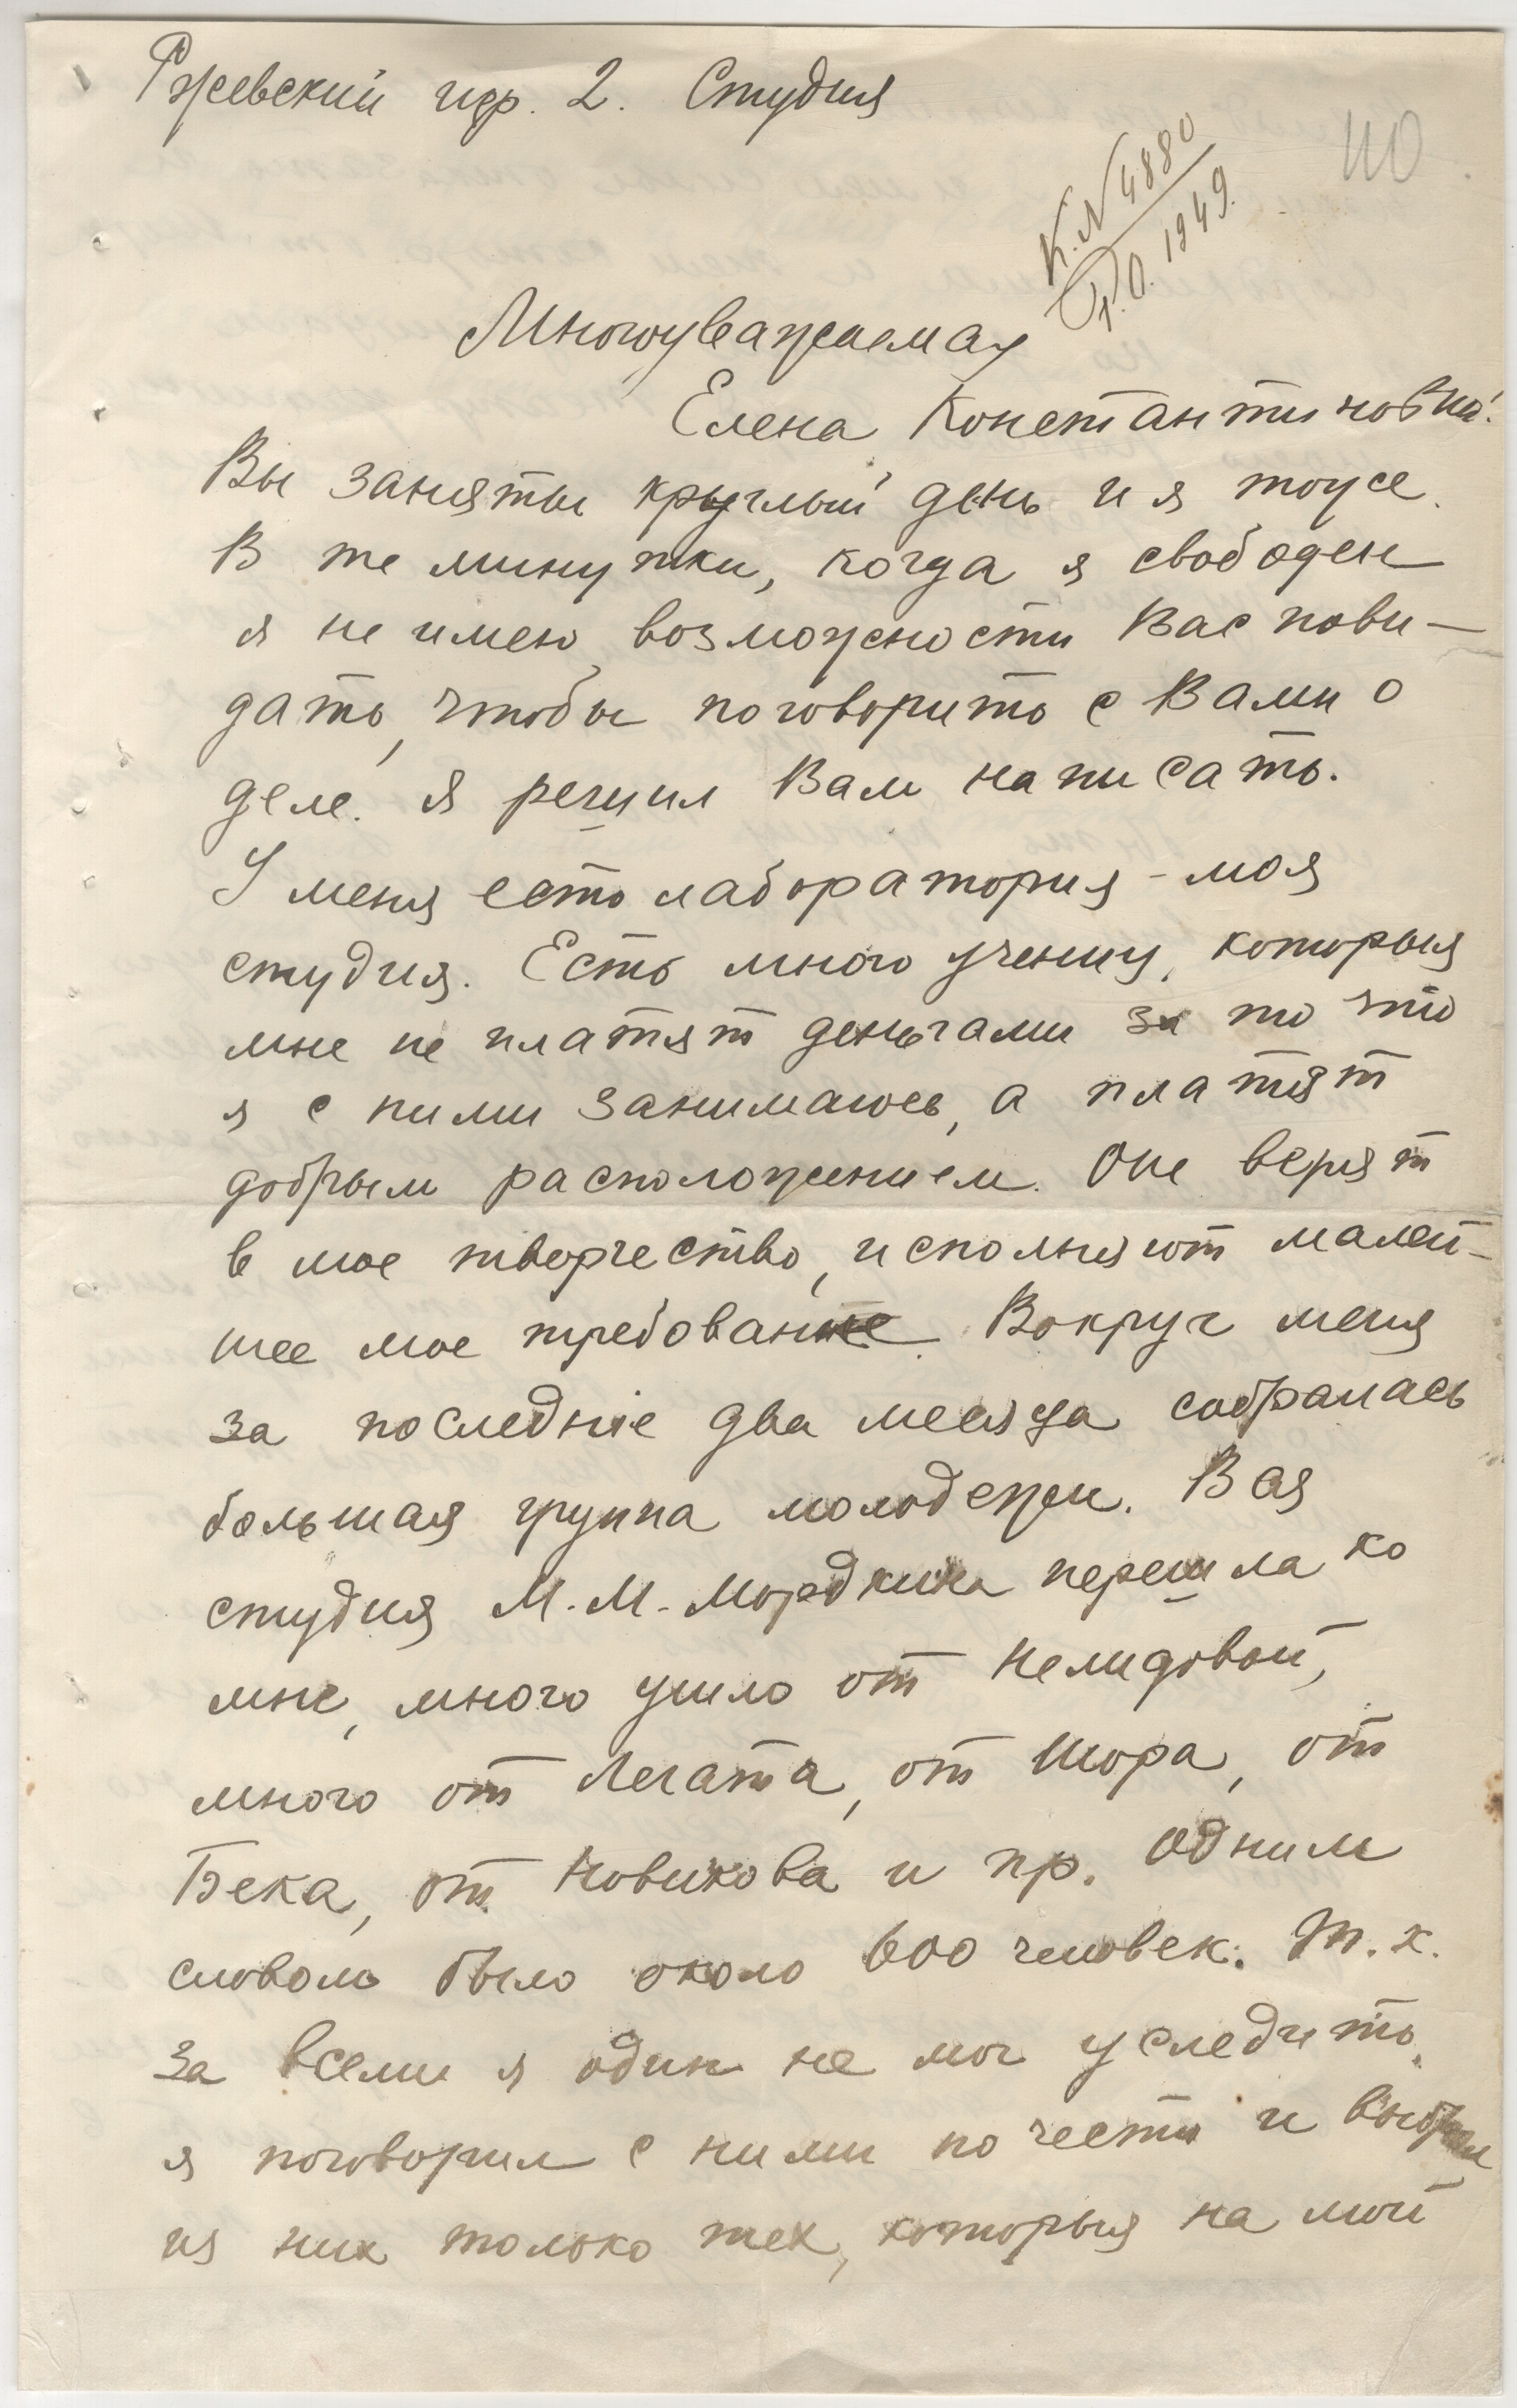 Ржевский пер. 2. Студия
110.
К.N 4880
Р.О. 1949.
Многоуважаемая
Елена Константиновна!
Вы заняты круглый день и я тоже.
В те минутки, когда я свободен
я не имею возможности Вас пови-
дать, чтобы поговорить с Вами о
деле. Я решил Вам написать.
У меня есть лаборатория - моя
студия. Есть много учениц, которыя
мне не платят деньгами за то что
я с ними занимаюсь, а платят
добрым расположением. Оне верят
в мое творчество, исполняют малей-
шее мое требование. Вокруг меня
за последние два месяца собралась
большая группа молодежи. Вся
студия М.М. Мордкина перешла ко
мне, много ушло от Нелидовой,
много от Легата, от Шора, от
Бека, от Новикова и пр. Одним
словом было около 600 человек. Т.к.
за всеми я один не мог уследить,
я поговорил с ними по чести и выбрал
из них только тех, которыя на мой